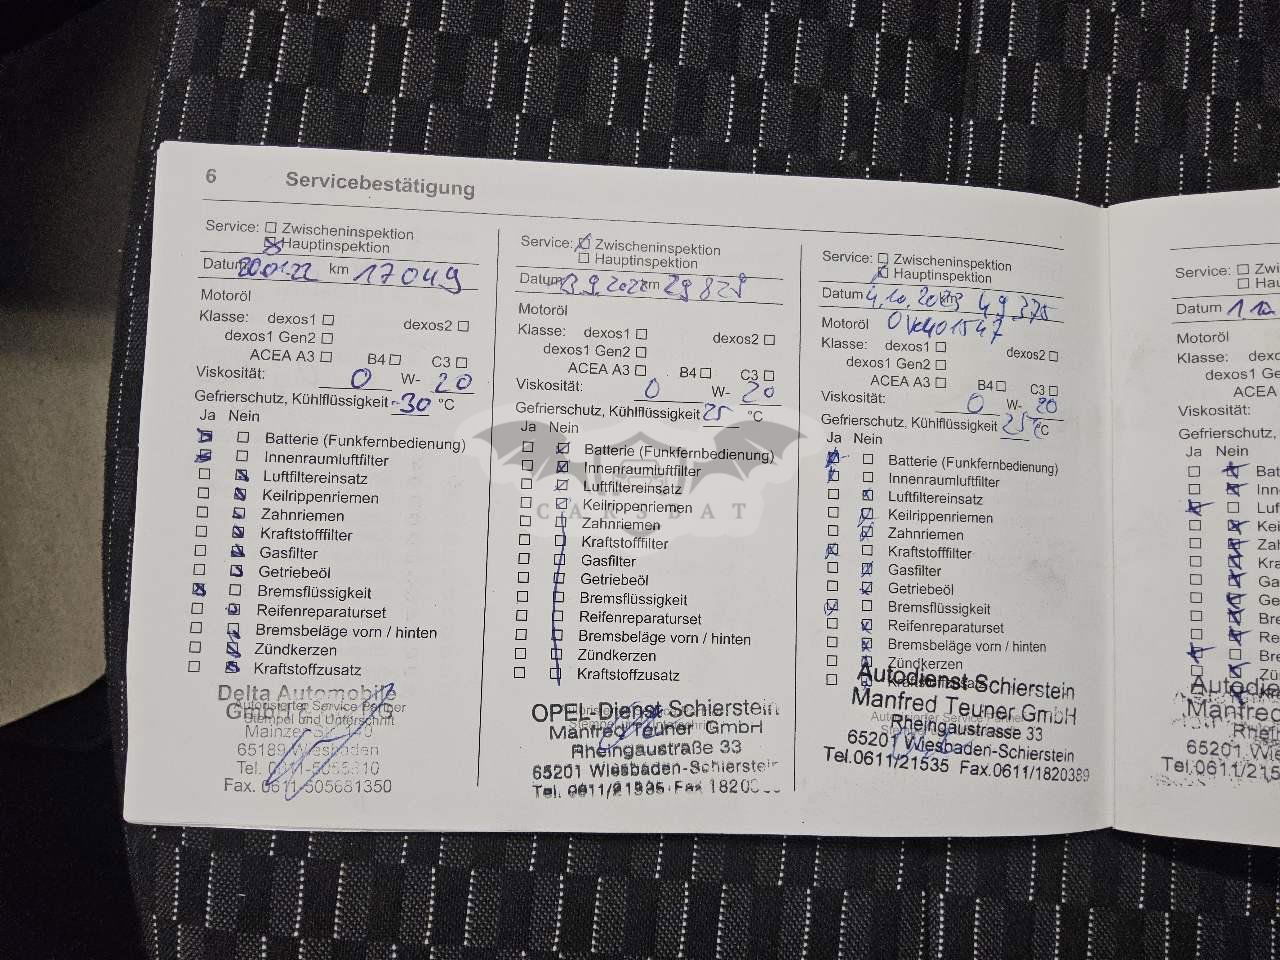 6 Servicebestätigung
Service: Zwischeninspektion
Hauptinspektion
Datum 20.01.22 km 17049
Motoröl
Klasse: dexos1 dexos2
dexos1 Gen2
ACEA A3 B4 C3
Viskosität: 0 W- 20
Gefrierschutz, Kühlflüssigkeit -30 °C
Ja Nein
Batterie (Funkfernbedienung)
Innenraumluftfilter
Luftfiltereinsatz
Keilrippenriemen
Zahnriemen
Kraftstofffilter
Gasfilter
Getriebeöl
Bremsflüssigkeit
Reifenreparaturset
Bremsbeläge vorn / hinten
Zündkerzen
Kraftstoffzusatz
Delta Automobile
GmbH
Autorisierter Service Partner
Stempel und Unterschrift
Mainzer
65189 Wiesbaden
Tel.
Fax. 0611-505681350
Service: Zwischeninspektion
Hauptinspektion
Datum 9.2022 km 29829
Motoröl
Klasse: dexos1 dexos2
dexos1 Gen2
ACEA A3 B4 C3
Viskosität: 0 W- 20
Gefrierschutz, Kühlflüssigkeit 25 °C
Ja Nein
Batterie (Funkfernbedienung)
Innenraumluftfilter
Luftfiltereinsatz
Keilrippenriemen
Zahnriemen
Kraftstofffilter
Gasfilter
Getriebeöl
Bremsflüssigkeit
Reifenreparaturset
Bremsbeläge vorn / hinten
Zündkerzen
Kraftstoffzusatz
OPEL-Dienst Schierstein
Manfred Teuner GmbH
Rheingaustraße 33
65201 Wiesbaden-Schierstein
Tel. 0611/21535 Fax 1820
CARSBAT
Service: Zwischeninspektion
Hauptinspektion
Datum 4.10.2023 km 49375
Motoröl OV401547
Klasse: dexos1 dexos2
dexos1 Gen2
ACEA A3 B4 C3
Viskosität: 0 W- 20
Gefrierschutz, Kühlflüssigkeit 25 °C
Ja Nein
Batterie (Funkfernbedienung)
Innenraumluftfilter
Luftfiltereinsatz
Keilrippenriemen
Zahnriemen
Kraftstofffilter
Gasfilter
Getriebeöl
Bremsflüssigkeit
Reifenreparaturset
Bremsbeläge vorn / hinten
Zündkerzen
Autodienst Schierstein
Manfred Teuner GmbH
Autorisierter Service Partner
Rheingaustrasse 33
65201 Wiesbaden-Schierstein
Tel.0611/21535 Fax.0611/1820389
Service: Zwi
Hau
Datum 1.10
Motoröl
Klasse: dexo
dexos1 Ge
ACEA
Viskosität:
Gefrierschutz,
Ja Nein
Bat
Inn
Luf
Kei
Zah
Kra
Ga
Ge
Bre
Re
Bre
Zü
Autodie
Manfred
Rhein
65201 Wie
Tel.0611/215